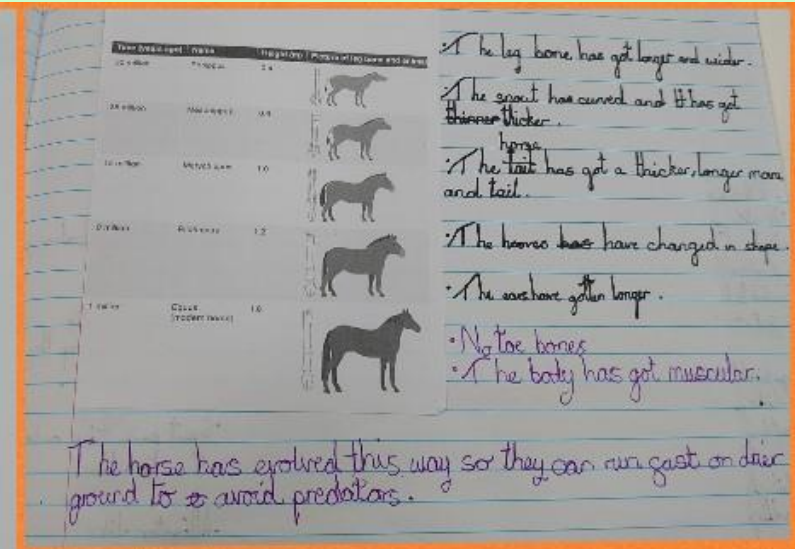 Time (years ago) Name Height (m) Picture of leg bone and animal
million 0.4
million
million 1.0
million 1.2
1 million Equus 1.6
(modern horse)
· The leg bone has got longer and wider.
· The snout has curved and it has got
thinner thicker.
horse
· The tail has got a thicker, longer mane
and tail.
· The hooves has have changed in shape.
· The ears have gotten longer.
· No toe bones
· The body has got muscular.
The horse has evolved this way so they can run fast on drier
ground to avoid predators.